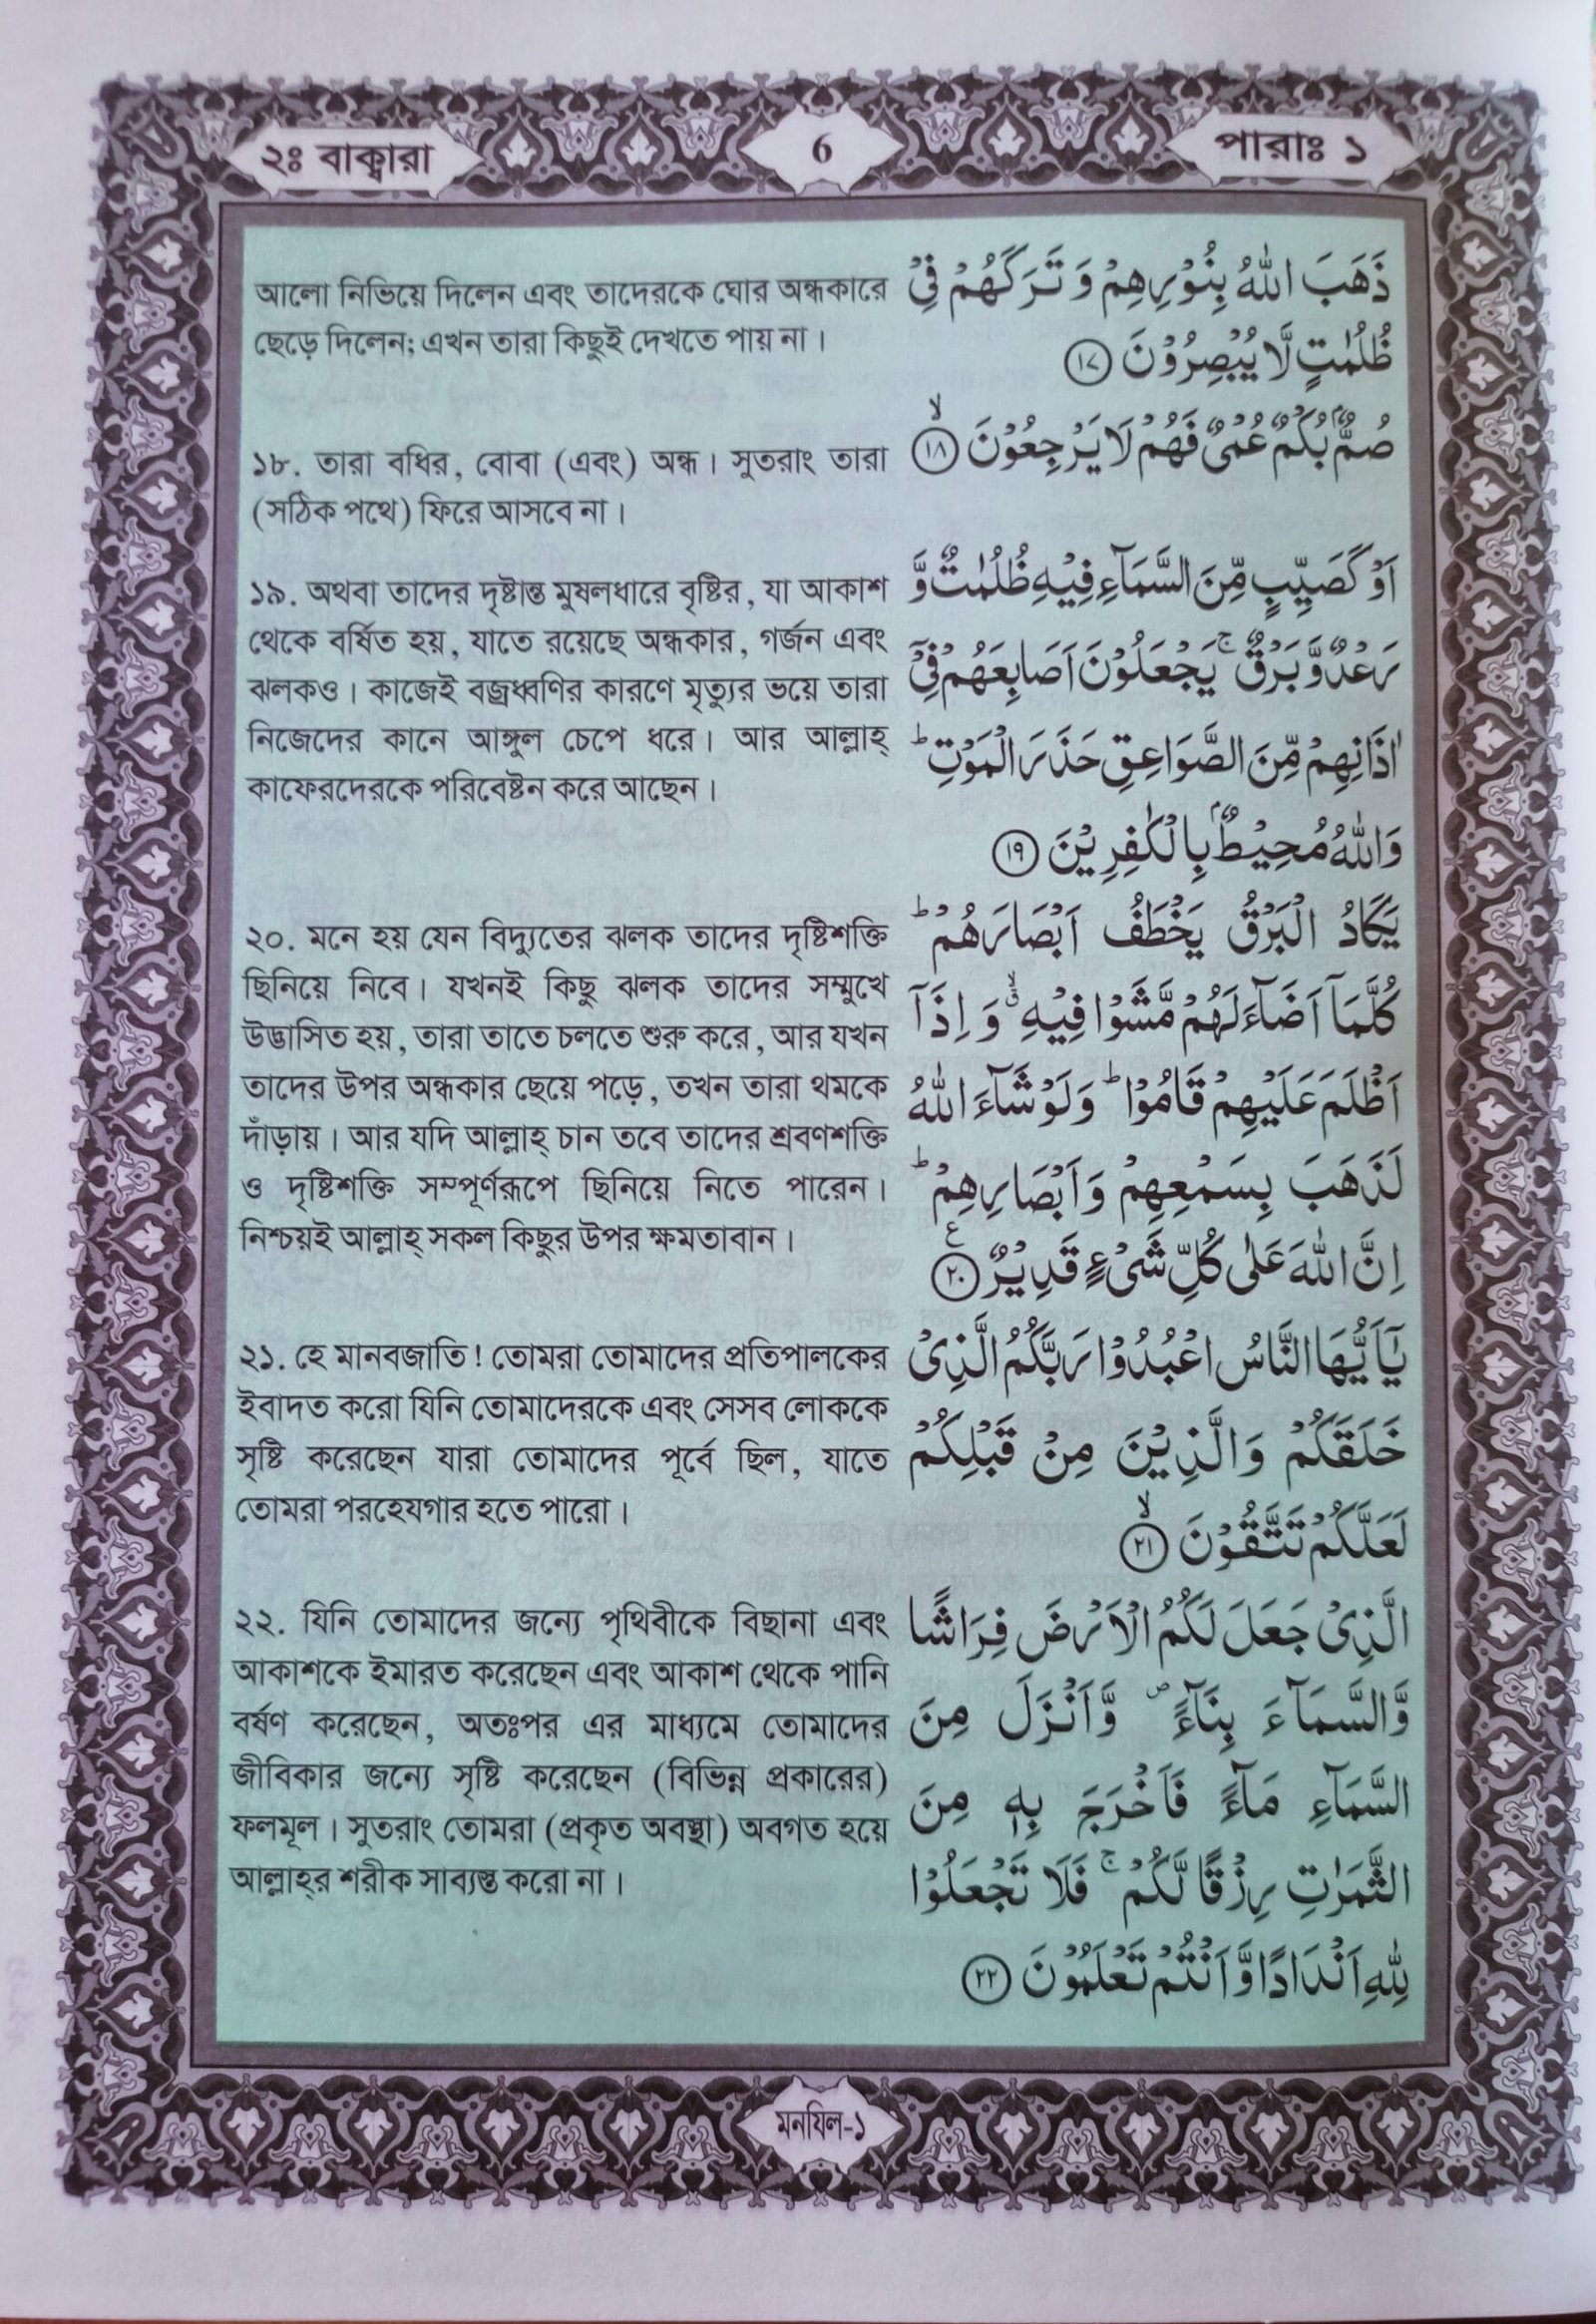 ২ঃ বাক্বারা
6
পারাঃ ১
ذَهَبَ اللّٰهُ بِنُوْرِهِمْ وَ تَرَكَهُمْ فِيْ
ظُلُمٰتٍ لَّا يُبْصِرُوْنَ ۝١٧
صُمٌّۢ بُكْمٌ عُمْيٌ فَهُمْ لَا يَرْجِعُوْنَ ۝١٨ۙ
اَوْ كَصَيِّبٍ مِّنَ السَّمَآءِ فِيْهِ ظُلُمٰتٌ وَّ
رَعْدٌ وَّ بَرْقٌ ۚ يَجْعَلُوْنَ اَصَابِعَهُمْ فِيْۤ
اٰذَانِهِمْ مِّنَ الصَّوَاعِقِ حَذَرَ الْمَوْتِ ؕ
وَاللّٰهُ مُحِيْطٌۢ بِالْكٰفِرِيْنَ ۝١٩
يَكَادُ الْبَرْقُ يَخْطَفُ اَبْصَارَهُمْ ؕ
كُلَّمَاۤ اَضَآءَ لَهُمْ مَّشَوْا فِيْهِ ۙۗ وَ اِذَاۤ
اَظْلَمَ عَلَيْهِمْ قَامُوْا ؕ وَلَوْ شَآءَ اللّٰهُ
لَذَهَبَ بِسَمْعِهِمْ وَ اَبْصَارِهِمْ ؕ
اِنَّ اللّٰهَ عَلٰى كُلِّ شَيْءٍ قَدِيْرٌ ۝٢٠ ع
يٰۤاَيُّهَا النَّاسُ اعْبُدُوْا رَبَّكُمُ الَّذِيْ
خَلَقَكُمْ وَالَّذِيْنَ مِنْ قَبْلِكُمْ
لَعَلَّكُمْ تَتَّقُوْنَ ۝٢١ۙ
الَّذِيْ جَعَلَ لَكُمُ الْاَرْضَ فِرَاشًا
وَّالسَّمَآءَ بِنَآءً ۪ وَّ اَنْزَلَ مِنَ
السَّمَآءِ مَآءً فَاَخْرَجَ بِهٖ مِنَ
الثَّمَرٰتِ رِزْقًا لَّكُمْ ۚ فَلَا تَجْعَلُوْا
لِلّٰهِ اَنْدَادًا وَّ اَنْتُمْ تَعْلَمُوْنَ ۝٢٢
আলো নিভিয়ে দিলেন এবং তাদেরকে ঘোর অন্ধকারে
ছেড়ে দিলেন; এখন তারা কিছুই দেখতে পায় না।
১৮. তারা বধির, বোবা (এবং) অন্ধ। সুতরাং তারা
(সঠিক পথে) ফিরে আসবে না।
১৯. অথবা তাদের দৃষ্টান্ত মুষলধারে বৃষ্টির, যা আকাশ
থেকে বর্ষিত হয়, যাতে রয়েছে অন্ধকার, গর্জন এবং
ঝলকও। কাজেই বজ্রধ্বণির কারণে মৃত্যুর ভয়ে তারা
নিজেদের কানে আঙ্গুল চেপে ধরে। আর আল্লাহ্
কাফেরদেরকে পরিবেষ্টন করে আছেন।
২০. মনে হয় যেন বিদ্যুতের ঝলক তাদের দৃষ্টিশক্তি
ছিনিয়ে নিবে। যখনই কিছু ঝলক তাদের সম্মুখে
উদ্ভাসিত হয়, তারা তাতে চলতে শুরু করে, আর যখন
তাদের উপর অন্ধকার ছেয়ে পড়ে, তখন তারা থমকে
দাঁড়ায়। আর যদি আল্লাহ্ চান তবে তাদের শ্রবণশক্তি
ও দৃষ্টিশক্তি সম্পূর্ণরূপে ছিনিয়ে নিতে পারেন।
নিশ্চয়ই আল্লাহ্ সকল কিছুর উপর ক্ষমতাবান।
২১. হে মানবজাতি! তোমরা তোমাদের প্রতিপালকের
ইবাদত করো যিনি তোমাদেরকে এবং সেসব লোককে
সৃষ্টি করেছেন যারা তোমাদের পূর্বে ছিল, যাতে
তোমরা পরহেযগার হতে পারো।
২২. যিনি তোমাদের জন্যে পৃথিবীকে বিছানা এবং
আকাশকে ইমারত করেছেন এবং আকাশ থেকে পানি
বর্ষণ করেছেন, অতঃপর এর মাধ্যমে তোমাদের
জীবিকার জন্যে সৃষ্টি করেছেন (বিভিন্ন প্রকারের)
ফলমূল। সুতরাং তোমরা (প্রকৃত অবস্থা) অবগত হয়ে
আল্লাহ্‌র শরীক সাব্যস্ত করো না।
মনযিল-১